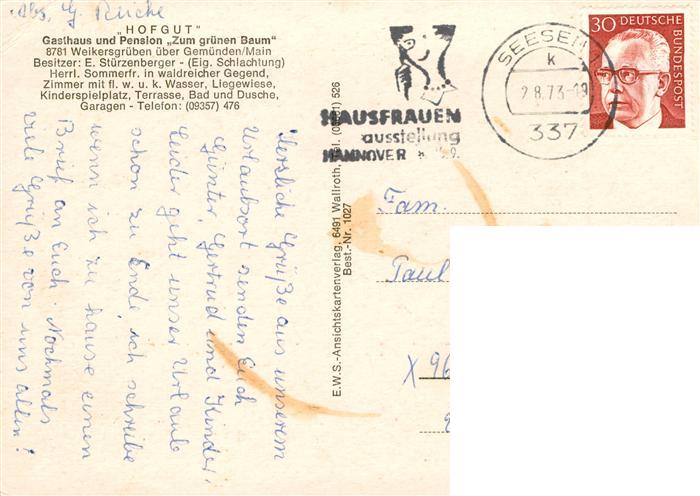 Abs. G. Reiche
„HOFGUT"
Gasthaus und Pension „Zum grünen Baum"
8781 Weikersgrüben über Gemünden/Main
Besitzer: E. Stürzenberger - (Eig. Schlachtung)
Herrl. Sommerfr. in waldreicher Gegend,
Zimmer mit fl. w. u. k. Wasser, Liegewiese,
Kinderspielplatz, Terrasse, Bad und Dusche,
Garagen - Telefon: (09357) 476
Herzliche Grüße aus unserem
Urlaubsort senden Euch
Günter, Gertrud und Kinder!
Leider geht unser Urlaub
schon zu Ende, ich schreibe
wenn ich zu hause einen
Brief an Euch. Nochmals
viele Grüße von uns allen!
E.W.S.-Ansichtskartenverlag, 6491 Wallroth, Tel. 526
Best.-Nr. 1027
HAUSFRAUEN
ausstellung
HANNOVER
SEESEN 1
k
2.8.73-19
337
30 DEUTSCHE
BUNDESPOST
Fam.
Paul
X 96